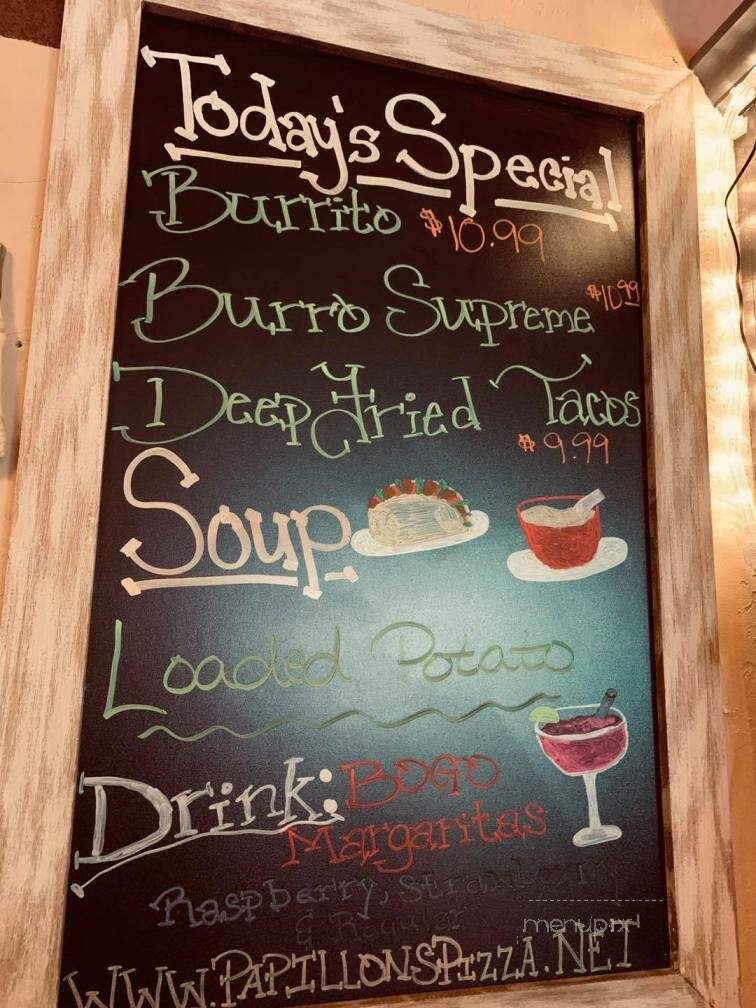 Today's Special
Burrito $10.99
Burro Supreme $10.99
Deep Fried Tacos
$9.99
Soup
Loaded Potato
Drink: BOGO
Margaritas
Raspberry, Strawberry
& Regular
menupix
WWW.PAPILLONSPIZZA.NET